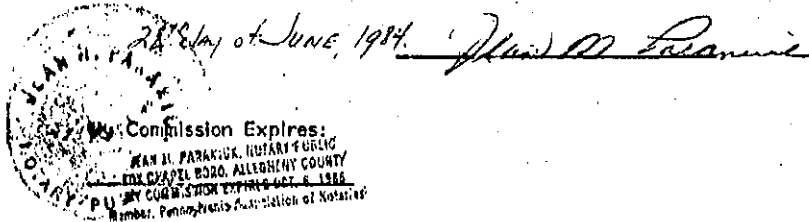 28th day of JUNE, 1984.
My Commission Expires:
JEAN M. PARANIUK, NOTARY PUBLIC
FOX CHAPEL BORO, ALLEGHENY COUNTY
MY COMMISSION EXPIRES OCT. 6, 1986
Member, Pennsylvania Association of Notaries